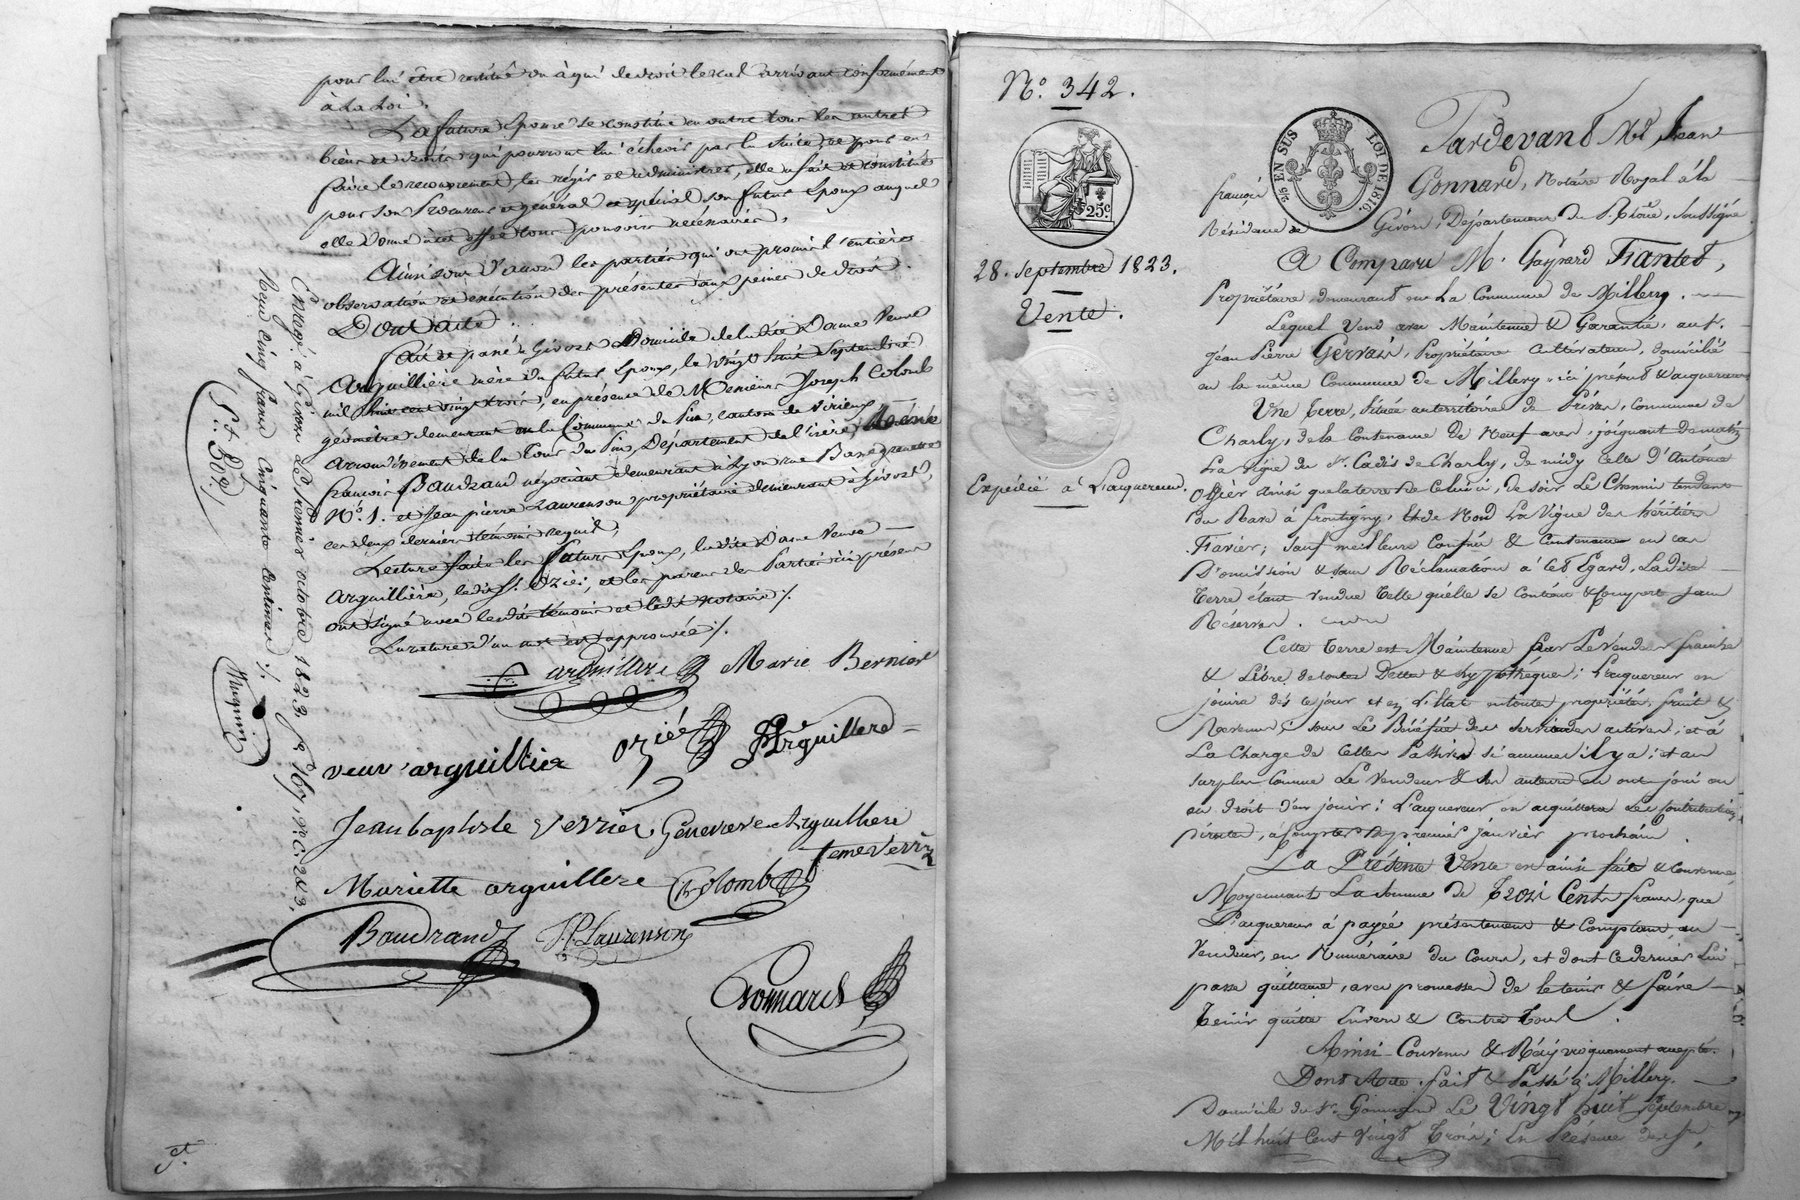 pour lui être restitué ou à qui de droit le cas arrivant conformément
à la loi.
La future Epouse se constitue en outre tous les autres
biens et droits qui pourront lui échoir par la suite, et pour en
faire le recouvrement, les régir et administrer, elle a fait et constitué
pour son Procureur général et spécial son futur Epoux auquel
elle donne à cet effet tous pouvoirs nécessaires.
Ainsi convenu les parties qui ont promis l'entière
observation et exécution des présentes aux peines de droit.
Dont acte
Fait et passé à Givors Domicile de la dite Dame Veuve
Arguillière mère du futur Epoux, le vingt huit Septembre
mil huit cent vingt trois, en présence de Messieurs Joseph Colomb
géomètre demeurant en la Commune du Pin, canton de Virieux
arrondissement de la Tour du Pin, Département de l'isère,
françois Baudrand négociant demeurant à Lyon rue
N°. 1. et Jean pierre Laurenson propriétaire demeurant à Givors,
ces deux derniers témoins requis;
Lecture faite les futurs Epoux, la dite Dame Veuve
Arguillière, le dit S. Oziés, et les parens des Parties ici présens
ont signé avec les dits témoins et le dit notaire ./.
La rature d'un mot est approuvée ./.
arguillere Marie Bernier
veuv arguillier oziée Arguillere
Jean baptiste verrier Genevieve Arguillere
feme verrier
Mariette arguillere Colomb
Baudrand J.P. Laurenson
Gonnard
Enregé. à Givors le premier octobre 1823. f°
Reçu cinq francs cinquante centimes ./.
5f 50c
N°. 342.
25c
28. Septembre 1823.
Vente.
Expédié à l'acquereur.
EN SUS
LOI DE 1816
Pardevant Me. Jean
françois Gonnard, Notaire Royal à la
Résidence de Givors, Département du Rhône, soussigné
A Comparu M. Gaspard Fiantet,
Propriétaire demeurant en la Commune de Millery.
Lequel vend avec Maintenue & Garantie, au S.
Jean Pierre Gervais, propriétaire cultivateur, domicilié
en la même Commune de Millery, ici présent & acquereur
Une terre, située au territoire de Commune de
Charly, de la Contenance de Neuf ares, joignant de matin
la vigne du S. Cadis de Charly, de midy celle d'Antoine
Ogier ainsi que la terre de celui ci, de soir le Chemin tendant
à frontigny, & de Nord la Vigne des héritiers
sauf meilleurs Confins & Contenance en cas
D'omission & sans Réclamation à cet Egard, La dite
terre étant vendue telle qu'elle se contient & comporte sans
Réserve.
Cette terre est Maintenue par le Vendeur franche
& Libre, de toutes Dettes & hypothèques; L'acquereur en
jouira dès ce jour et en l'état en toute propriété, fruits &
Revenus, sous le Bénéfice des servitudes actives, et à
La Charge de celles Passives si aucunes il y a; et au
surplus comme le Vendeur & ses auteurs en ont joui ou
eu droit d'en jouir; L'acquereur en acquittera les contributions
à compter du premier janvier prochain.
La Présente Vente est ainsi faite & convenue,
Moyennant la somme de trois Cents francs, que
L'acquereur à payée présentement & Comptant au
Vendeur, en Numéraire du Cours, et dont ce dernier lui
passe quittance, avec promesse de le tenir & faire
tenir quitte Envers & Contre tous.
Ainsi Convenu & Réciproquement accepté.
Dont Acte. fait & Passé à Millery.
Domicile du S. Gonnard le Vingt huit septembre
Mil huit Cent vingt trois; En Présence des Srs.